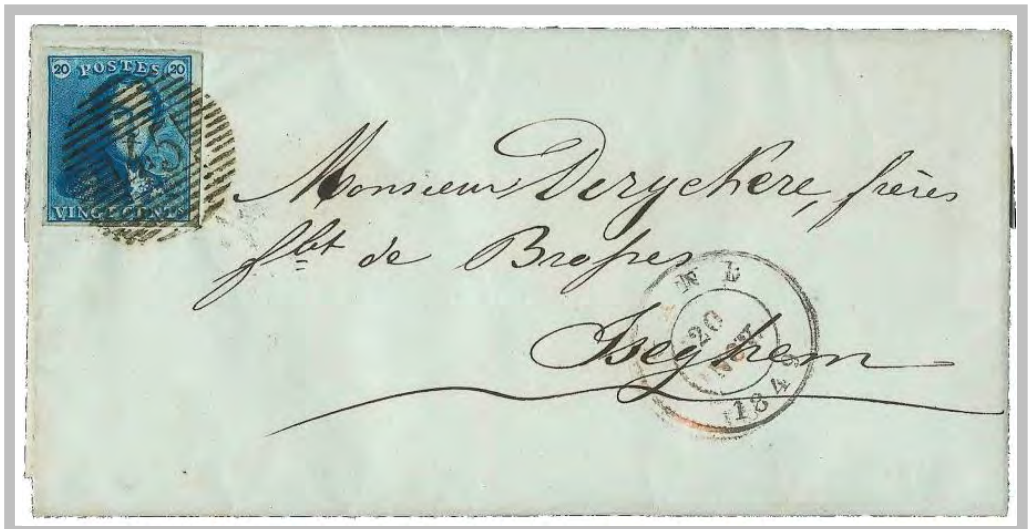 20 POSTES 20
VINGT CENTS
Monsieur Deryckere, frères
fbt de Brosses
Iseghem
N L
20
1849